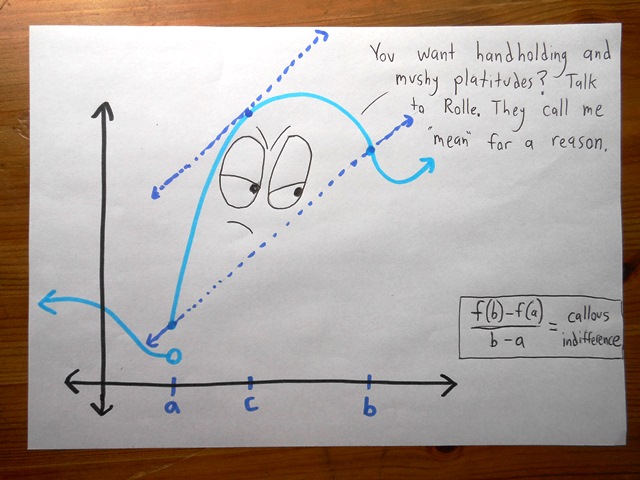 You want handholding and
mushy platitudes? Talk
to Rolle. They call me
"mean" for a reason.
f(b)-f(a)
b-a
= callous
indifference
a
c
b